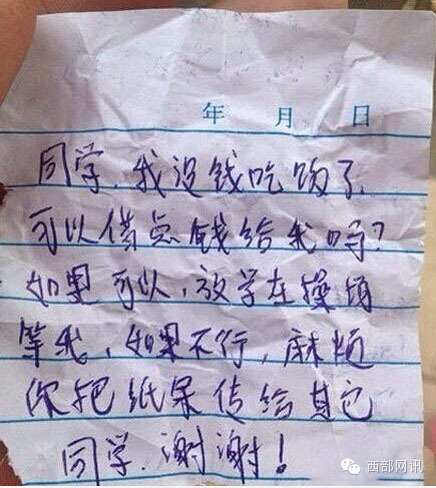 年 月 日
同学,我没钱吃饭了,
可以借点钱给我吗?
如果可以,放学在操场
等我,如果不行,麻烦
你把纸条传给其它
同学,谢谢!
西部网讯